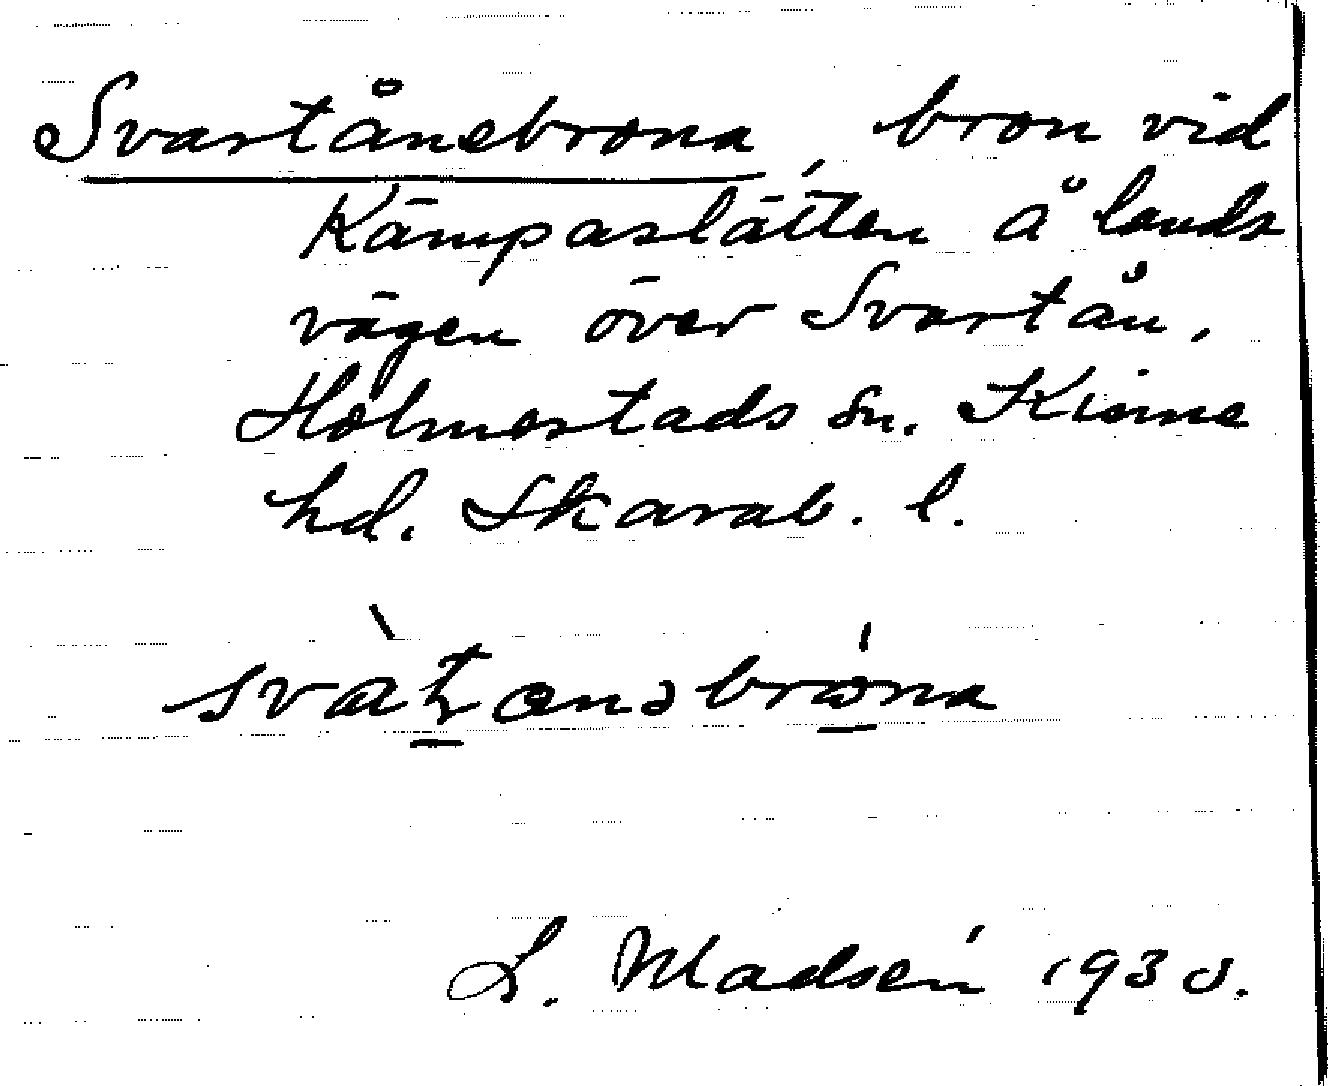 Svartånebrona, bron vid
Kämpaslätten å lands
vägen över Svartån.
Holmestads sn. Kinne
hd. Skarab. l.
svàt̲ anəbró̲na
L. Madsén 1930.